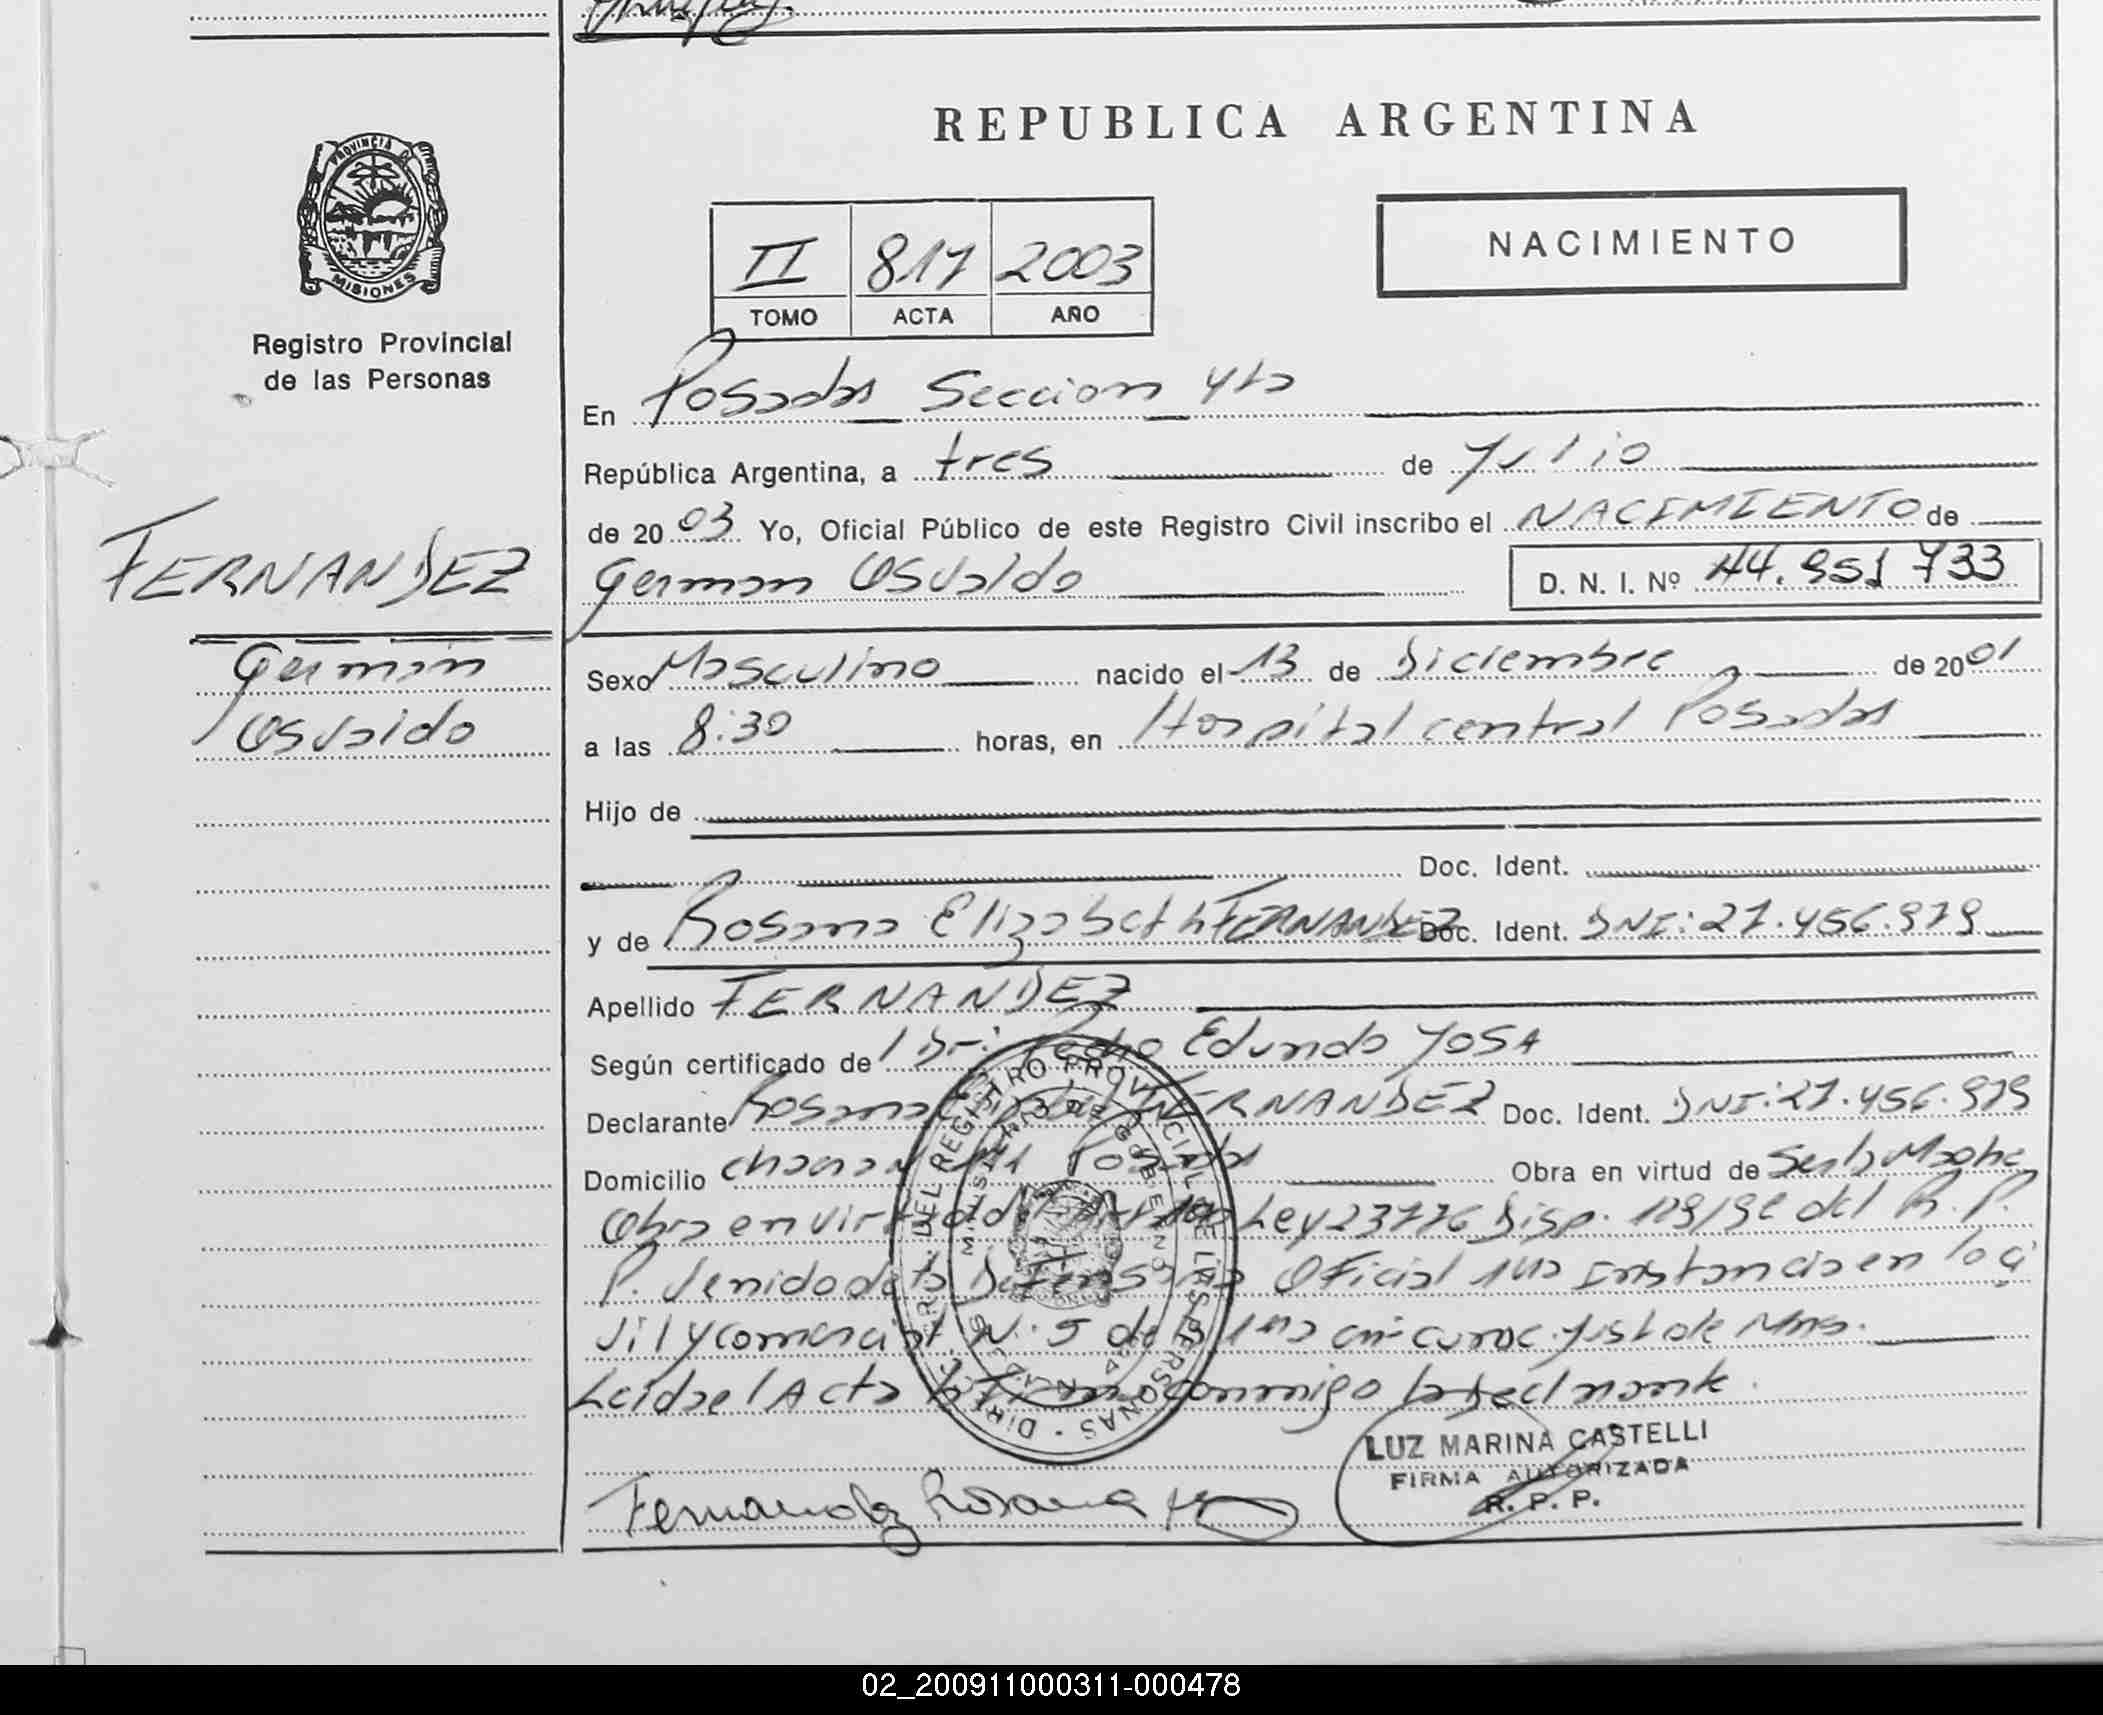 PROVINCIA DE
MISIONES
Registro Provincial
de las Personas
FERNANDEZ
German
Osvaldo
REPUBLICA ARGENTINA
II 817 2003
TOMO ACTA AÑO
NACIMIENTO
En Posadas Seccion 4ta
República Argentina, a tres de Julio
de 2003 Yo, Oficial Público de este Registro Civil inscribo el NACIMIENTO de
German Osvaldo D. N. I. Nº 44.951 733
Sexo Masculino nacido el 13 de Diciembre de 2001
a las 8:30 horas, en Hospital central Posadas
Hijo de
Doc. Ident.
y de Rosana Elizabeth FERNANDEZ Doc. Ident. DNI: 27.456.979
Apellido FERNANDEZ
Según certificado de Dr: Pedro Edundo JOSA
Declarante Rosana FERNANDEZ Doc. Ident. DNI: 27.456.979
Domicilio Posadas Obra en virtud de
Obra en virtud Ley 23776 Disp. del R. P.
P. Venido de la Defensoria Oficial 1ra Instancia en lo ci
vil y comercial N. 5 de la 1ra circunc. Just de Mnes.
Leida el Acta la Firma conmigo la declarante.
DIRECC. GR. DEL REGISTRO PROVINCIAL DE LAS PERSONAS
MINISTERIO DE GOBIERNO
POSADAS
Fernandez Rosana
LUZ MARINA CASTELLI
FIRMA AUTORIZADA
R. P. P.
02_200911000311-000478